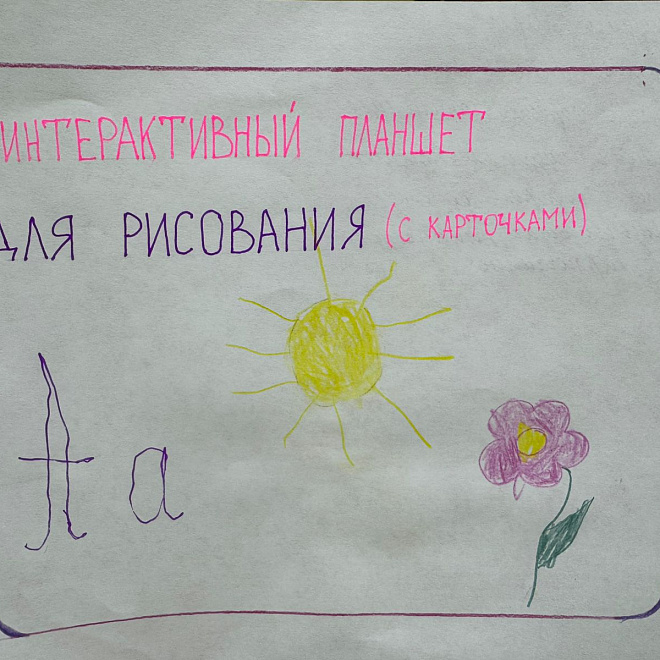 ИНТЕРАКТИВНЫЙ ПЛАНШЕТ
ДЛЯ РИСОВАНИЯ (С КАРТОЧКАМИ)
А а